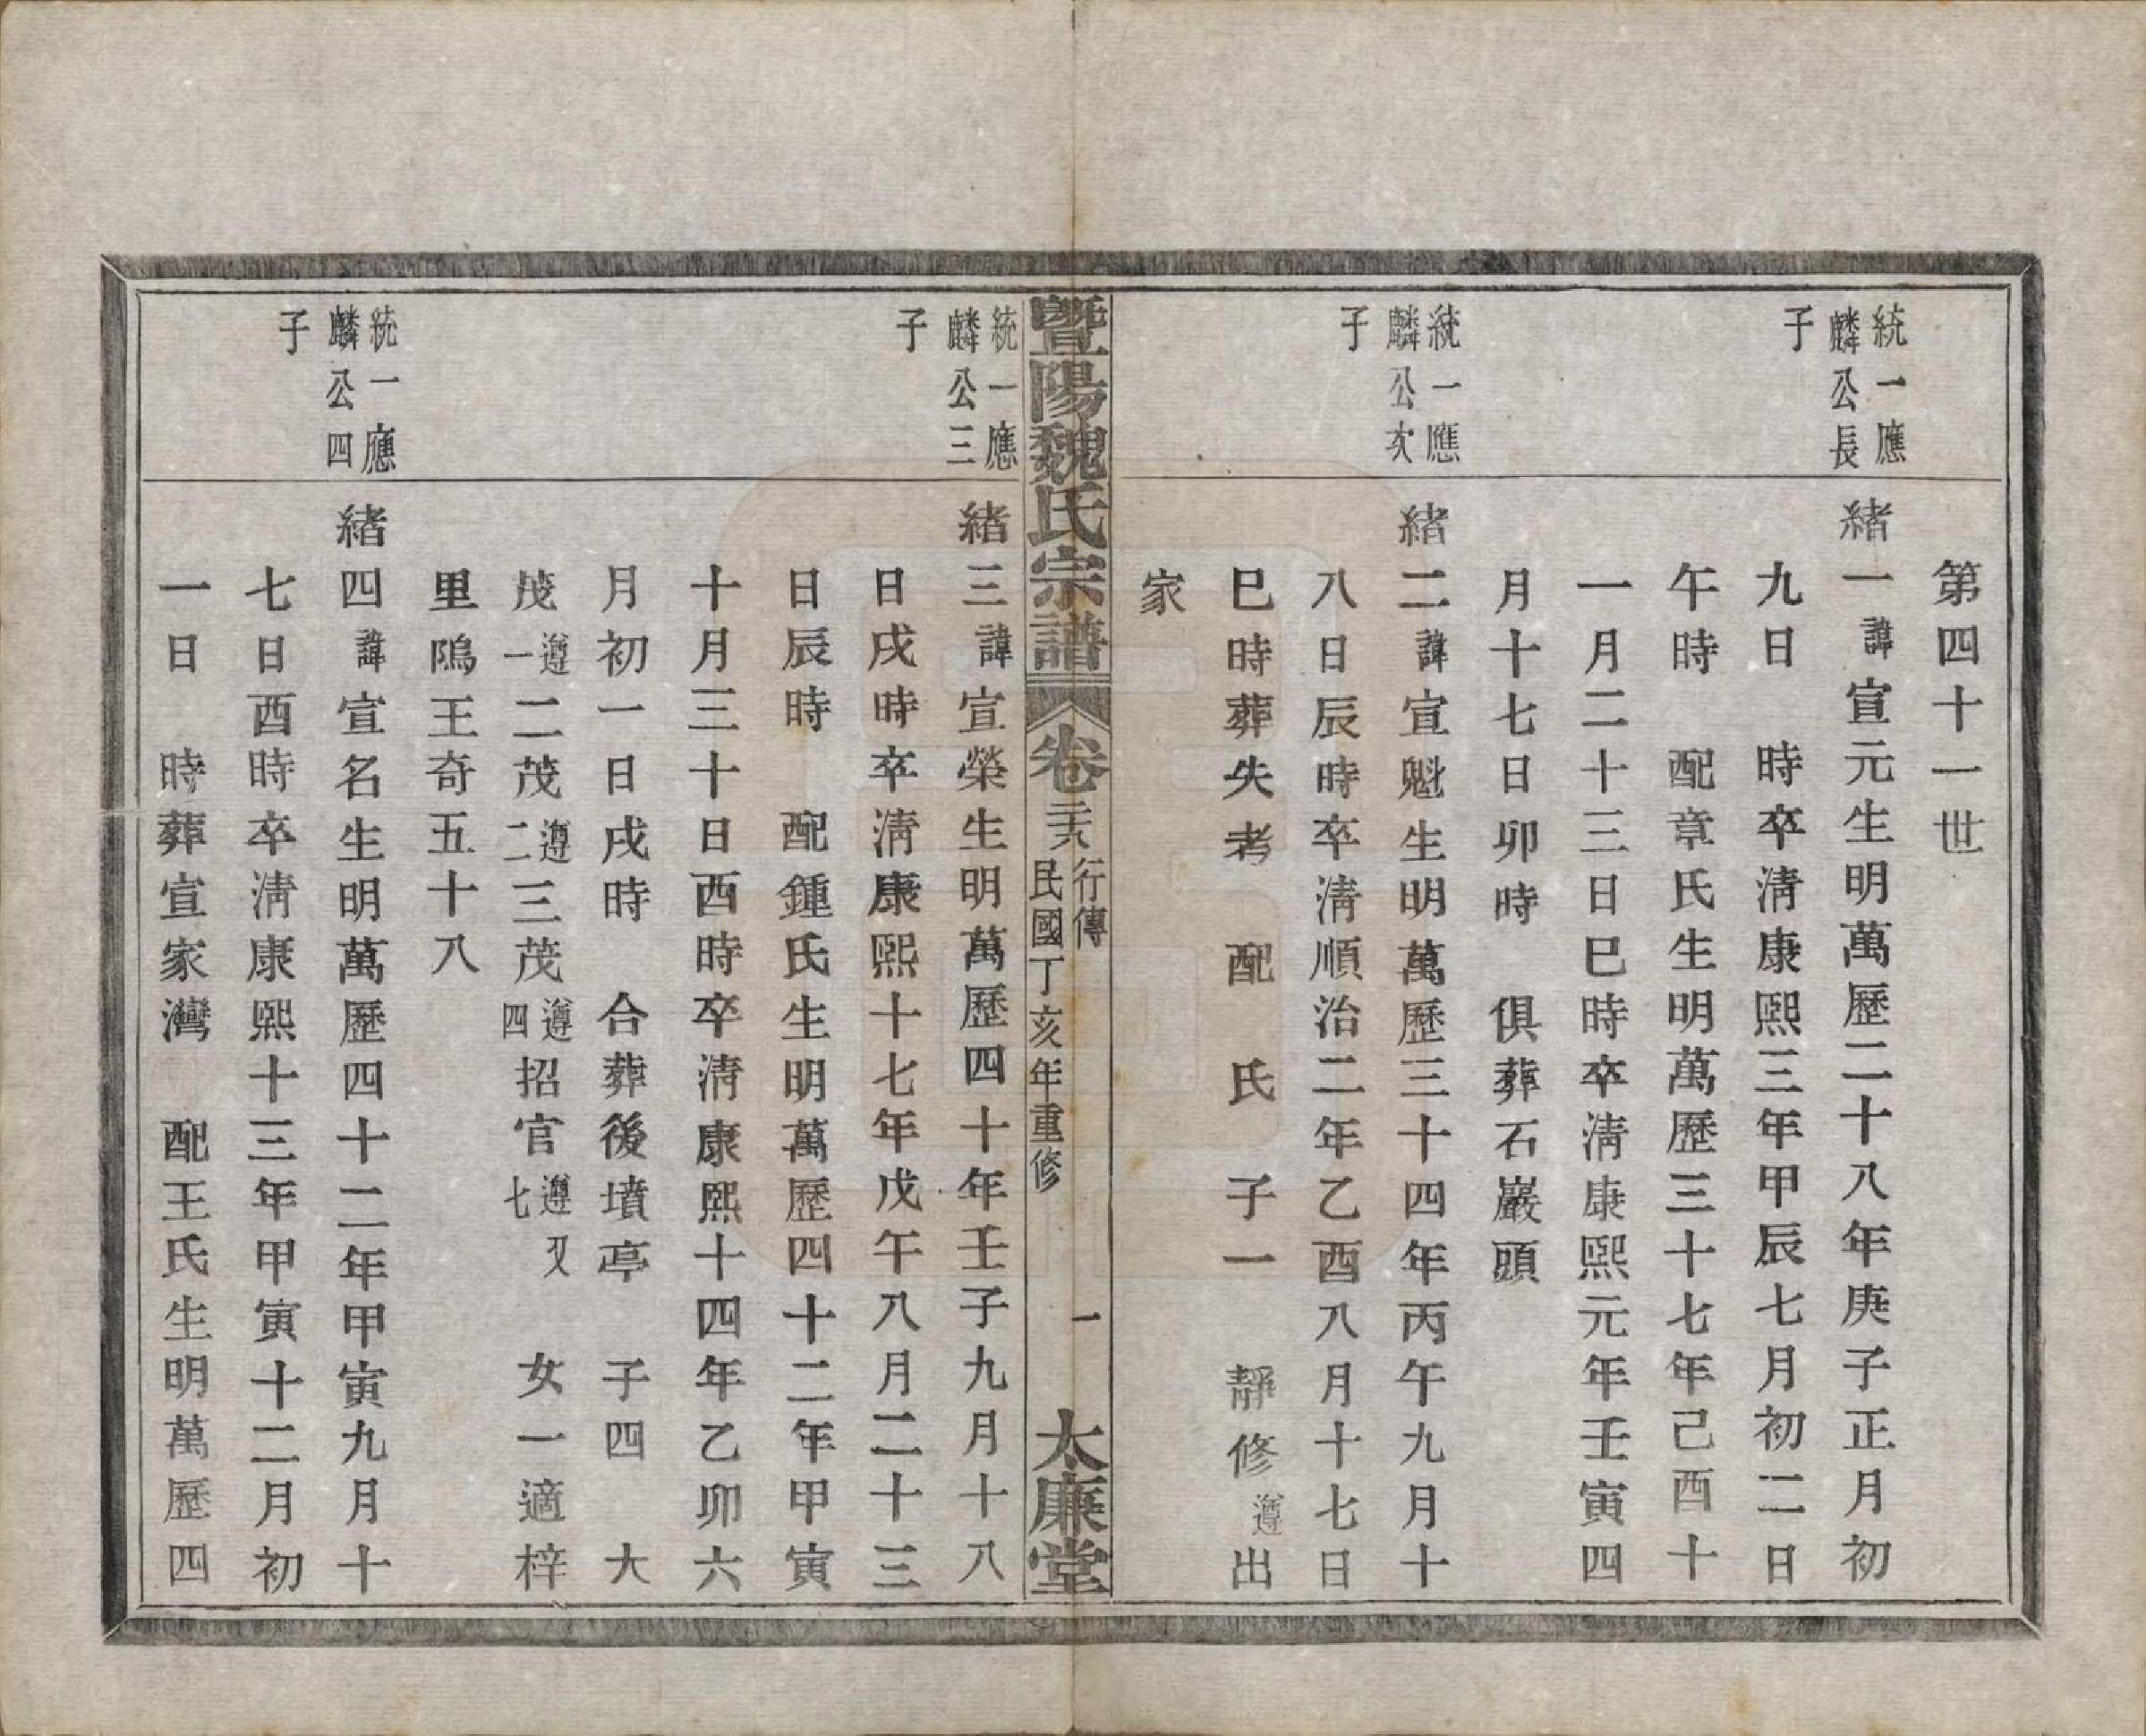 第四十一世
統一應
麟公長
子
緒一諱宣元生明萬歷二十八年庚子正月初
九日 時卒淸康熙三年甲辰七月初二日
午時 配章氏生明萬歷三十七年己酉十
一月二十三日巳時卒淸康熙元年壬寅四
月十七日卯時 俱葬石巖頭
統一應
麟公次
子
緒二諱宣魁生明萬歷三十四年丙午九月十
八日辰時卒淸順治二年乙酉八月十七日
巳時葬失考 配 氏 子一 靜修遵出
家
暨陽魏氏宗譜 卷二六 行傳 民國丁亥年重修 一 太廉堂
統一應
麟公三
子
緒三諱宣榮生明萬歷四十年壬子九月十八
日戌時卒淸康熙十七年戊午八月二十三
日辰時 配鍾氏生明萬歷四十二年甲寅
十月三十日酉時卒淸康熙十四年乙卯六
月初一日戌時 合葬後墳亭 子四 大
茂遵一二茂遵二三茂遵四招官遵七又 女一適梓
里隝王奇五十八
統一應
麟公四
子
緒四諱宣名生明萬歷四十二年甲寅九月十
七日酉時卒淸康熙十三年甲寅十二月初
一日 時葬宣家灣 配王氏生明萬歷四